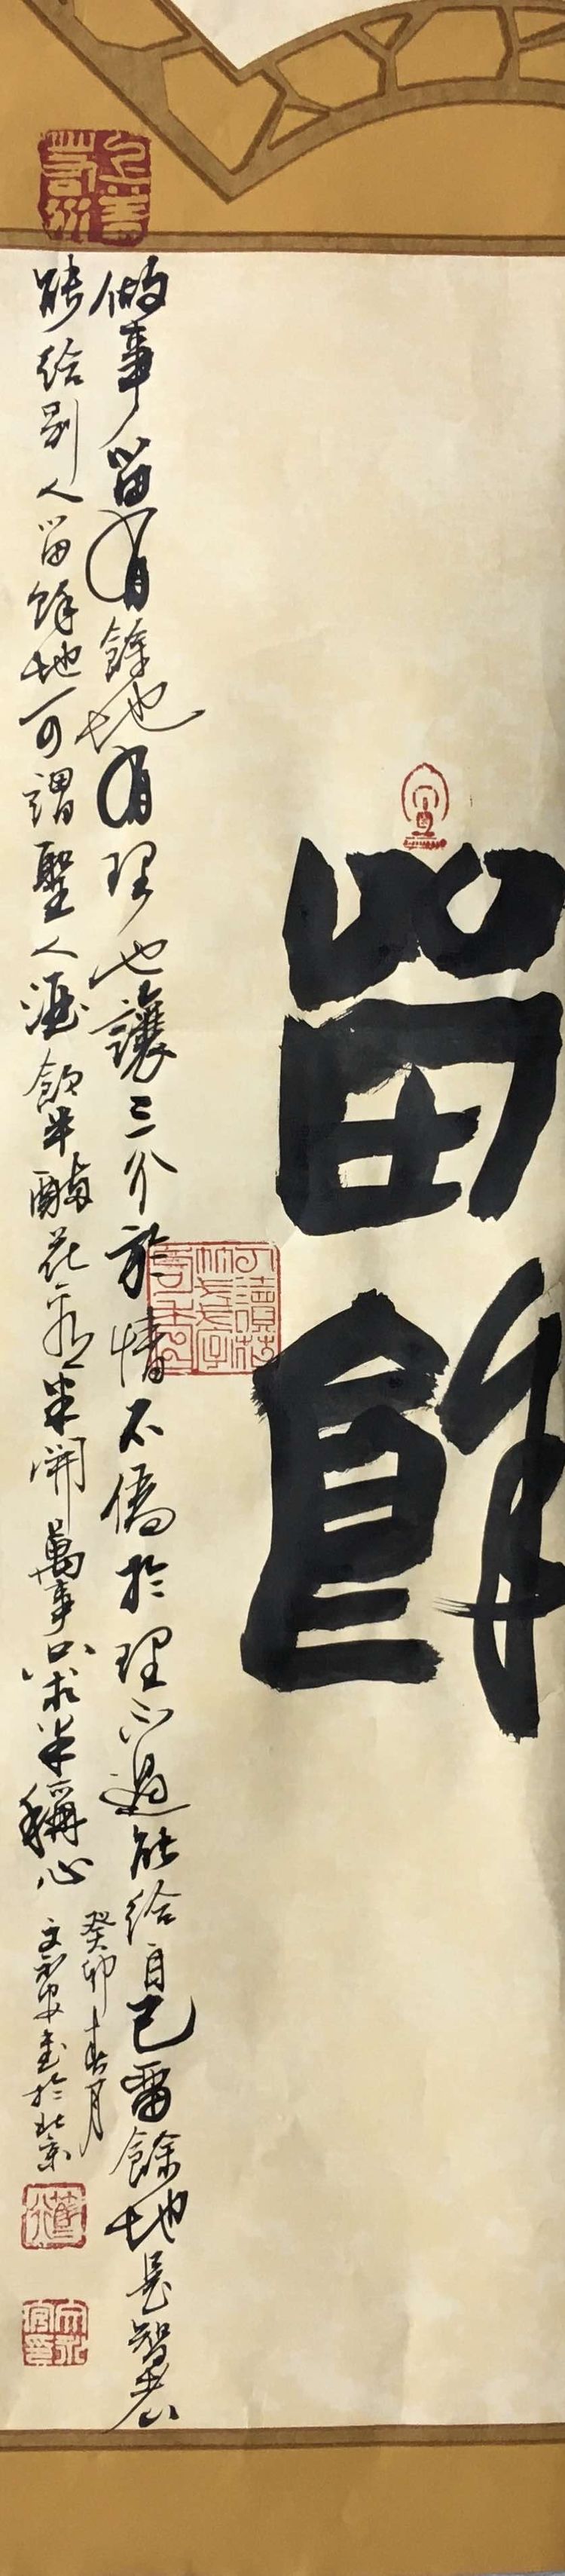 留餘
做事留有餘地有理也讓三分於情不偏於理不過能給自己留餘地是智者
能給別人留餘地可謂聖人酒飲半酣花看半開萬事只求半稱心
癸卯春月
於北京